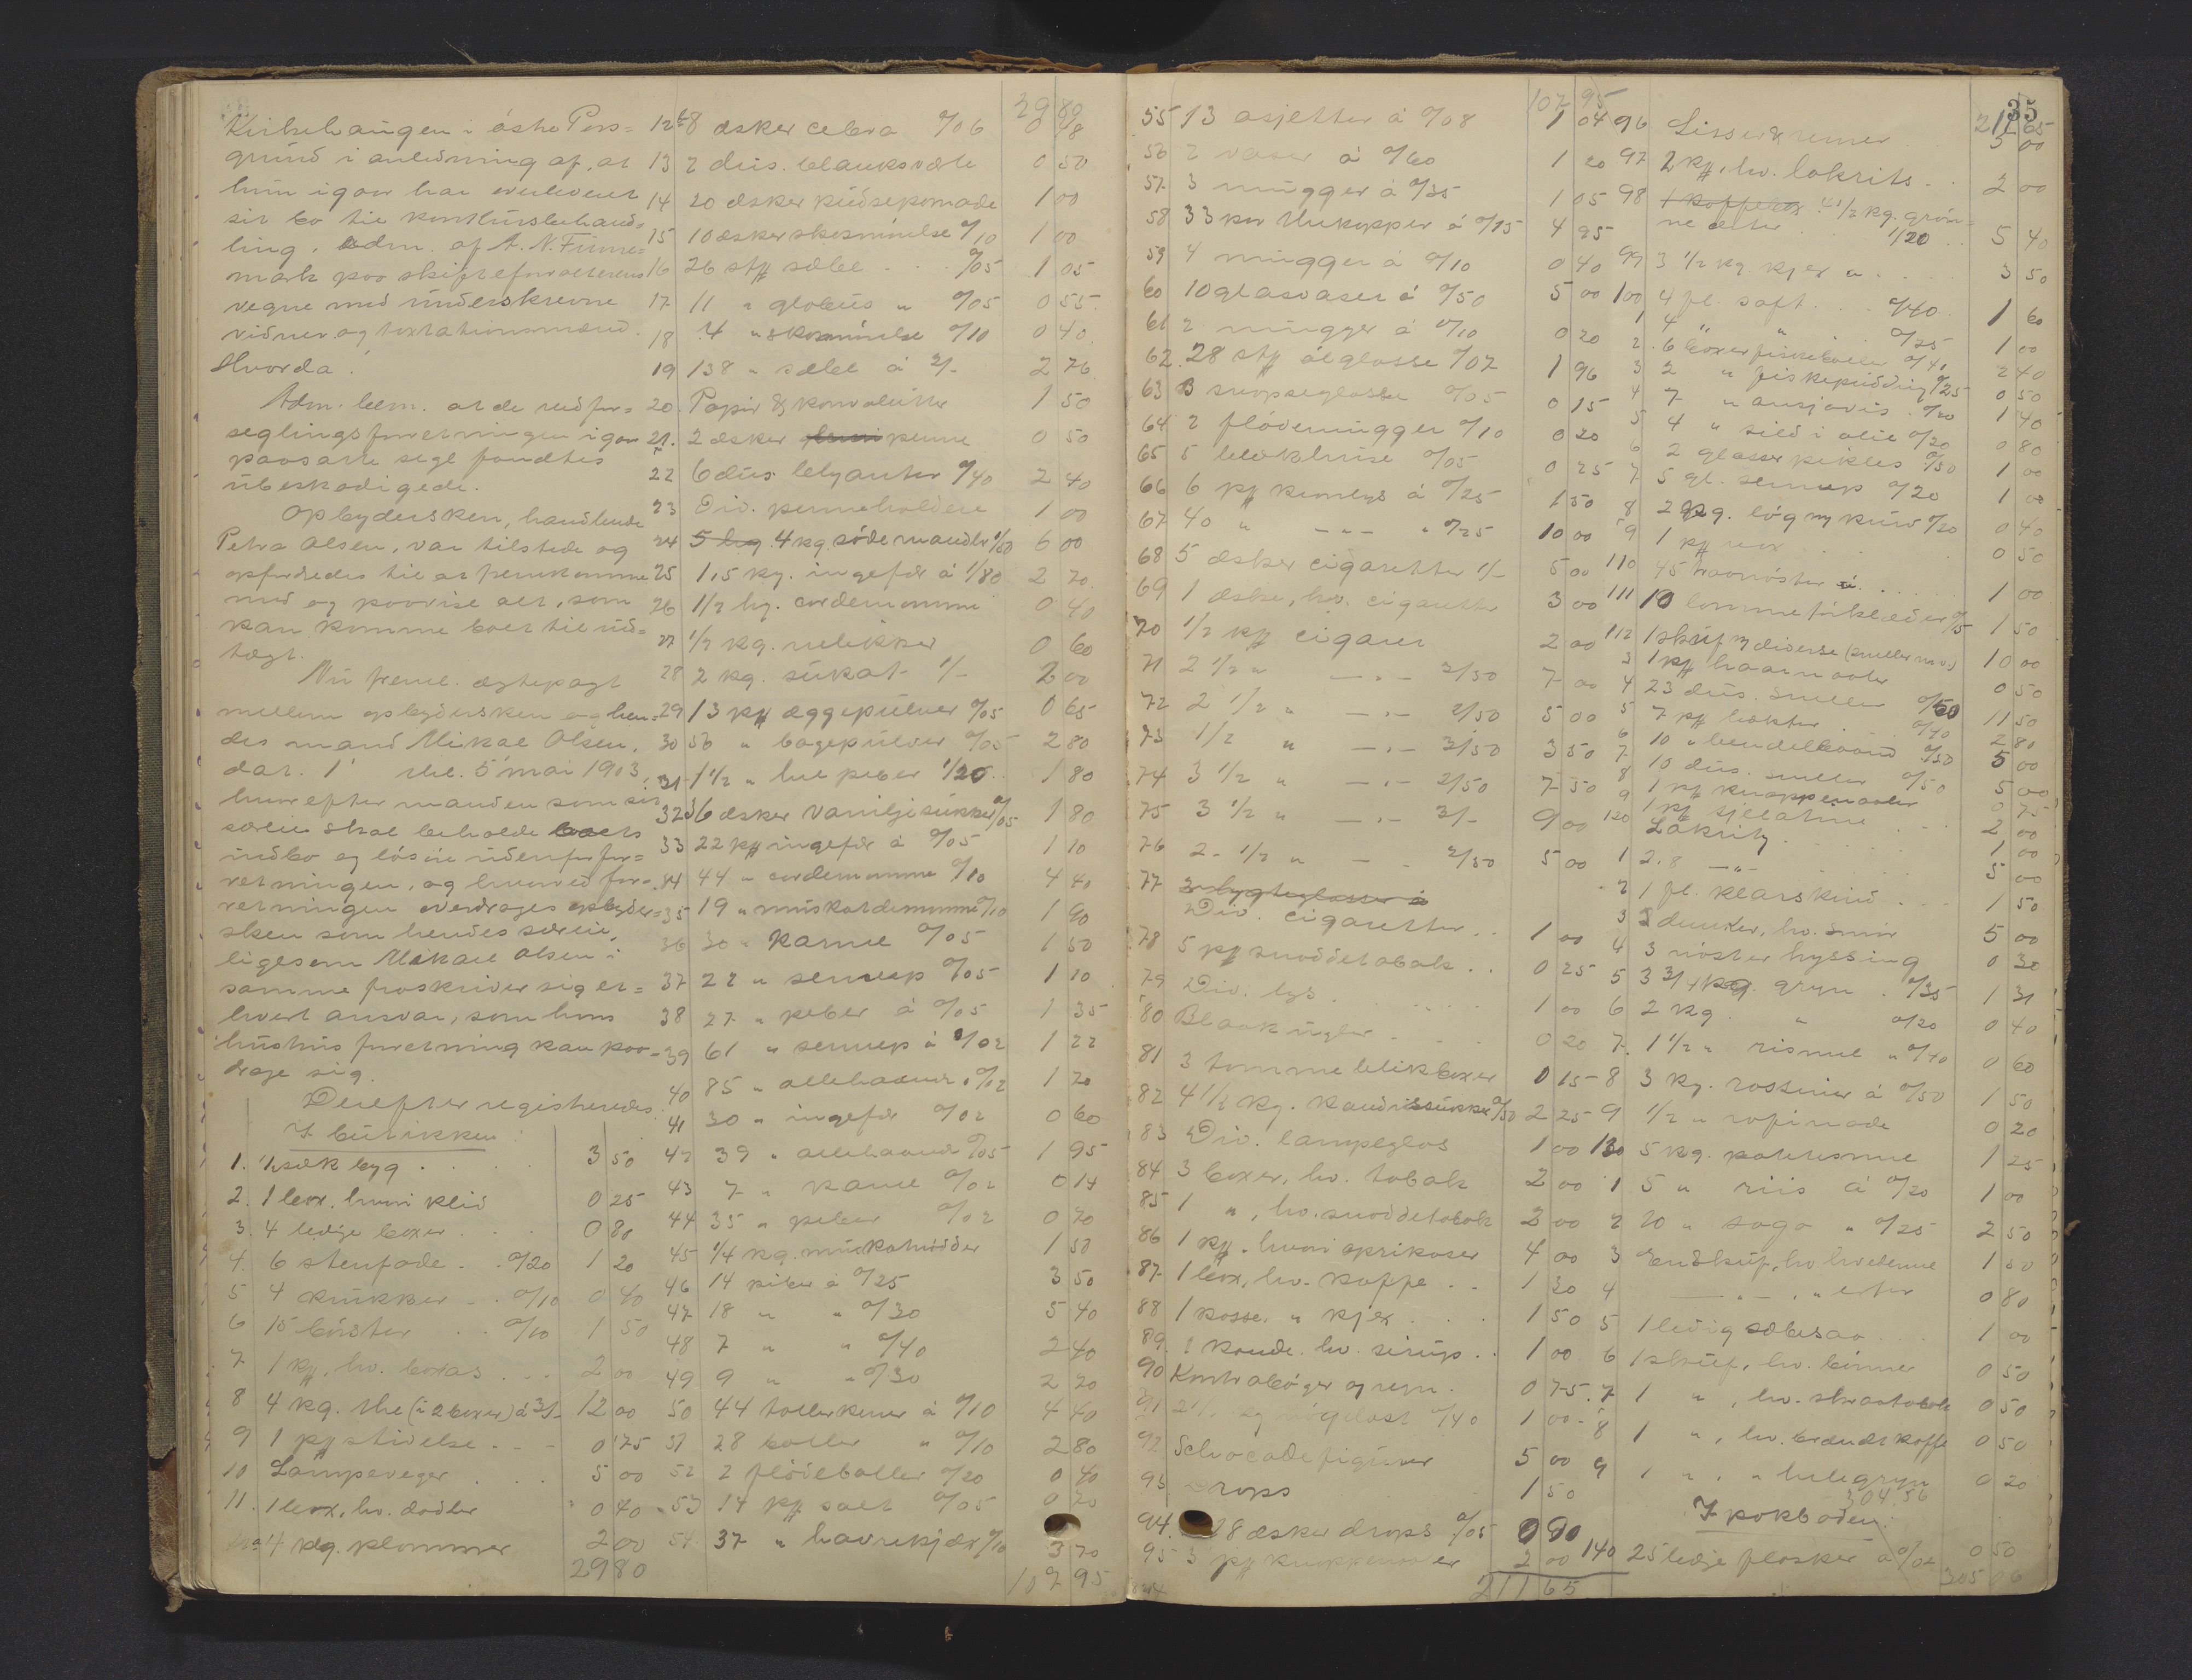 Kirkehaugen i østre Pors=
grund i anledning af, at
hun igaar har overleveret
sit bo til konkursbehand=
ling. Adm. af A. N. Finne=
mark paa skifteforvalterens
vegne med underskrevne
vidner og taxtationsmænd.
Hvorda:
Adm. bem. at de ved for=
seglingsforretningen igaar
paasatte segl fandtes
ubeskadigede.
Opbydersken, handlende
Petra Olsen, var tilstede og
opfordredes til at fremkomme
med og paavise alt, som
kan komme boet til ind=
tægt.
Nu freml. ægtepagt
mellem opbydersken og hen=
des mand Mikael Olsen,
dat. 1' thl. 5' mai 1903,
hvorefter manden som sit
særeie skal beholde boets
indbo og løsøre udenfor for=
retningen, og hvorved for=
retningen overdrages opbyder=
sken som hendes særeie,
ligesom Mikael Olsen i
samme fraskriver sig et=
hvert ansvar, som hans
hustrus forretning kan paa=
drage sig.
Derefter registreredes:
I butikken:
1. 1/2 sæk byg . . . 3 50
2. 1 box. hvori klid 0 25
3. 4 ledige boxer . . . 0 80
4. 6 stenfade . . 0/20 1 20
5 4 krukker . . 0/10 0 40
6 15 børster . . 0/10 1 50
7 1 pk, hv. borax . . . 2 00
8 4 kg. the (i 2 boxer) á 3/- 12 00
9 1 pk stivelse . . . 0 75
10 Lampeveger . . . 5 00
11. 1 box, hv. dadler 0 40
12a 4 kg. plommer 2 00
29 80
29 80
12b 8 æsker cebra 0/06 0 48
13 2 dus. blanksværte 0 50
14 20 æsker pudsepomade 1 00
15 10 æsker skosmørelse 0/10 1 00
16 26 stk sæbe . . 0/05 1 05
17 11 " globus " 0/05 0 55
18 4 " skosmørelse 0/10 0 40
19 138 " sæbe á 2/- 2 76
20. Papir & konvolutter 1 50
21. 2 æsker penne 0 50
22 6 dus. blyanter 0/40 2 40
23 Div. penneholdere 1 00
24 4 kg. søde mandler 1/50 6 00
25 1,5 kg. ingefær á 1/80 2 70
26 1/2 kg. cardemomme 0 40
27 1/2 kg. nelikker 0 60
28 2 kg. sukat 1/- 2 00
29 13 pk æggepulver 0/05 0 65
30 56 " bagepulver 0/05 2 80
31 1 1/2 " hel peber 1/20 1 80
32 36 æsker vaniljesukker 0/05 1 80
33 22 pk ingefær á 0/05 1 10
34 44 " cardemomme 0/10 4 40
35 19 " muskatblomme 0/10 1 90
36 30 " kanel 0/05 1 50
37 22 " sennep 0/05 1 10
38 27 " peber á 0/05 1 35
39 61 " sennep á 0/02 1 22
40 85 " allehaande 0/02 1 70
41 30 " ingefær 0/02 0 60
42 39 " allehaande 0/05 1 95
43 7 " kanel 0/02 0 14
44 35 " peber 0/02 0 70
45 1/4 kg. muskatnødder 1 50
46 14 piber á 0/25 3 50
47 18 " " 0/30 5 40
48 7 " " 0/40 2 40
49 9 " " 0/30 2 70
50 44 tallerkener á 0/10 4 40
51 28 boller " 0/10 2 80
52 2 flødeboller 0/20 0 40
53 14 pk salt 0/05 0 70
54 37 " havrekjæx 0/10 3 70
107 95
107 95
55 13 asjetter á 0/08 1 04
56 2 vaser á 0/60 1 20
57 3 mugger á 0/35 1 05
58 33 par thekopper á 0/15 4 95
59 4 mugger á 0/10 0 40
60 10 glasvaser á 0/50 5 00
61 2 mugger á 0/10 0 20
62. 28 stk ølglasse 0/07 1 96
63 3 snapseglasse 0/05 0 15
64 2 flødemugger 0/10 0 20
65 5 blækhuse 0/05 0 25
66 6 pk kronlys á 0/25 1 50
67 40 " — " — " 0/25 10 00
68 5 æsker cigaretter 1/- 5 00
69 1 æske, hv. cigaretter 3 00
70 1/2 pk cigarer 2 00
71 2 1/2 " — " — 2/50 7 00
72 2 1/2 " — " — 2/50 5 00
73 1/2 " — " — 3/50 3 50
74 3 1/2 " — " — 2/50 7 50
75 3 1/2 " — " — 3/- 9 00
76 2 1/2 " — " — 2/50 5 00
77 3 lygteglasse á
Div. cigaretter . . 1 00
78 5 pk snoddetobak . . 0 25
79 Div. lys . . . 1 00
80 Blaakugler . . . 0 20
81 3 tomme blikboxer 0 15
82 4 1/2 kg. kandissukker 0/50 2 25
83 Div. lampeglas 1 00
84 3 boxer, hv. tobak 2 00
85 1 ", hv. snoddetobak 2 00
86 1 pk. hvori aprikoser 4 00
87 1 box, hv. kaffe . . 1 30
88 1 kasse. " kjæx . . . 1 50
89. 1 kande. hv. sirup . . 1 00
90 Kontrabøger og regn. 0 75
91 2 1/2 kg nøgelost 0/40 1 00
92 Schocoladefigurer 5 00
93 Drops 1 50
94. 18 æsker drops 0/05 0 90
95 3 pk knappenaaler 2 00
211 65
35
211 65
96 Lisser & remer 5 00
97 2 pk, hv. lakrits . . 2 00
98 4 1/2 kg. grøn=
ne ærter . . 1/20 . . 5 40
99 3 1/2 kg. kjæx a . . . 3 50
100 4 fl. saft . . . 0/40 1 60
1 4 " " . . 0/25 1 00
2 6 boxer fiskeboller 0/40 2 40
3 2 " fiskepudding 0/25 0 50
4 7 " ansjovis . 0/20 1 40
5 4 " sild i olie 0/20 0 80
6 2 glasser pikles 0/50 1 00
7 5 gl. sennep 0/20 1 00
8 2 kg. løg og krus 0/20 0 40
9 1 pk vox . . . 0 50
110 45 traanøster á . . . 1 00
111 10 lommetørklæder 0/15 1 50
112 1 skuf og diverse (sneller m.v.) 10 00
3 1 pk haarnaaler 0 50
4 23 dus. sneller 0/50 11 50
5 7 pk hækter 0/40 2 80
6 10 " bendelbaand 0/50 5 00
7 10 dus. sneller 0/50 5 00
8 1 pk knappenaaler 0 75
9 1 pk 2 00
120 Lakrits . . . 1 00
1 2.8 — " — 5 00
2 1 fl. klarskind . . . 1 50
3 3 dunker, hv. smør 5 00
4 3 nøster hyssing 0 30
5 3 3/4 kg. gryn . 0/35 1 31
6 2 kg. " 0/20 0 40
7. 1 1/2 " rismel " 0/40 0 60
8 3 kg. rossiner á 0/50 1 50
9 1/2 " rafinade 0 20
130 5 kg. potetesmel 1 25
1 5 " riis á 0/20 1 00
2 10 " sago " 0/25 2 50
3 En skuf, hv. hvedemel 1 50
4 — " — , " erter 0 80
5 1 ledig sæbesaa . . . 1 00
6 1 skuf, hv. bønner 0 50
7 1 ", hv. skraatobak 0 50
8 1 ", hv. brændt kaffe 0 50
9 1 ", " helegryn 0 20
304 56
I pakboden:
140 25 ledige flasker á 0/02 0 50
305 06